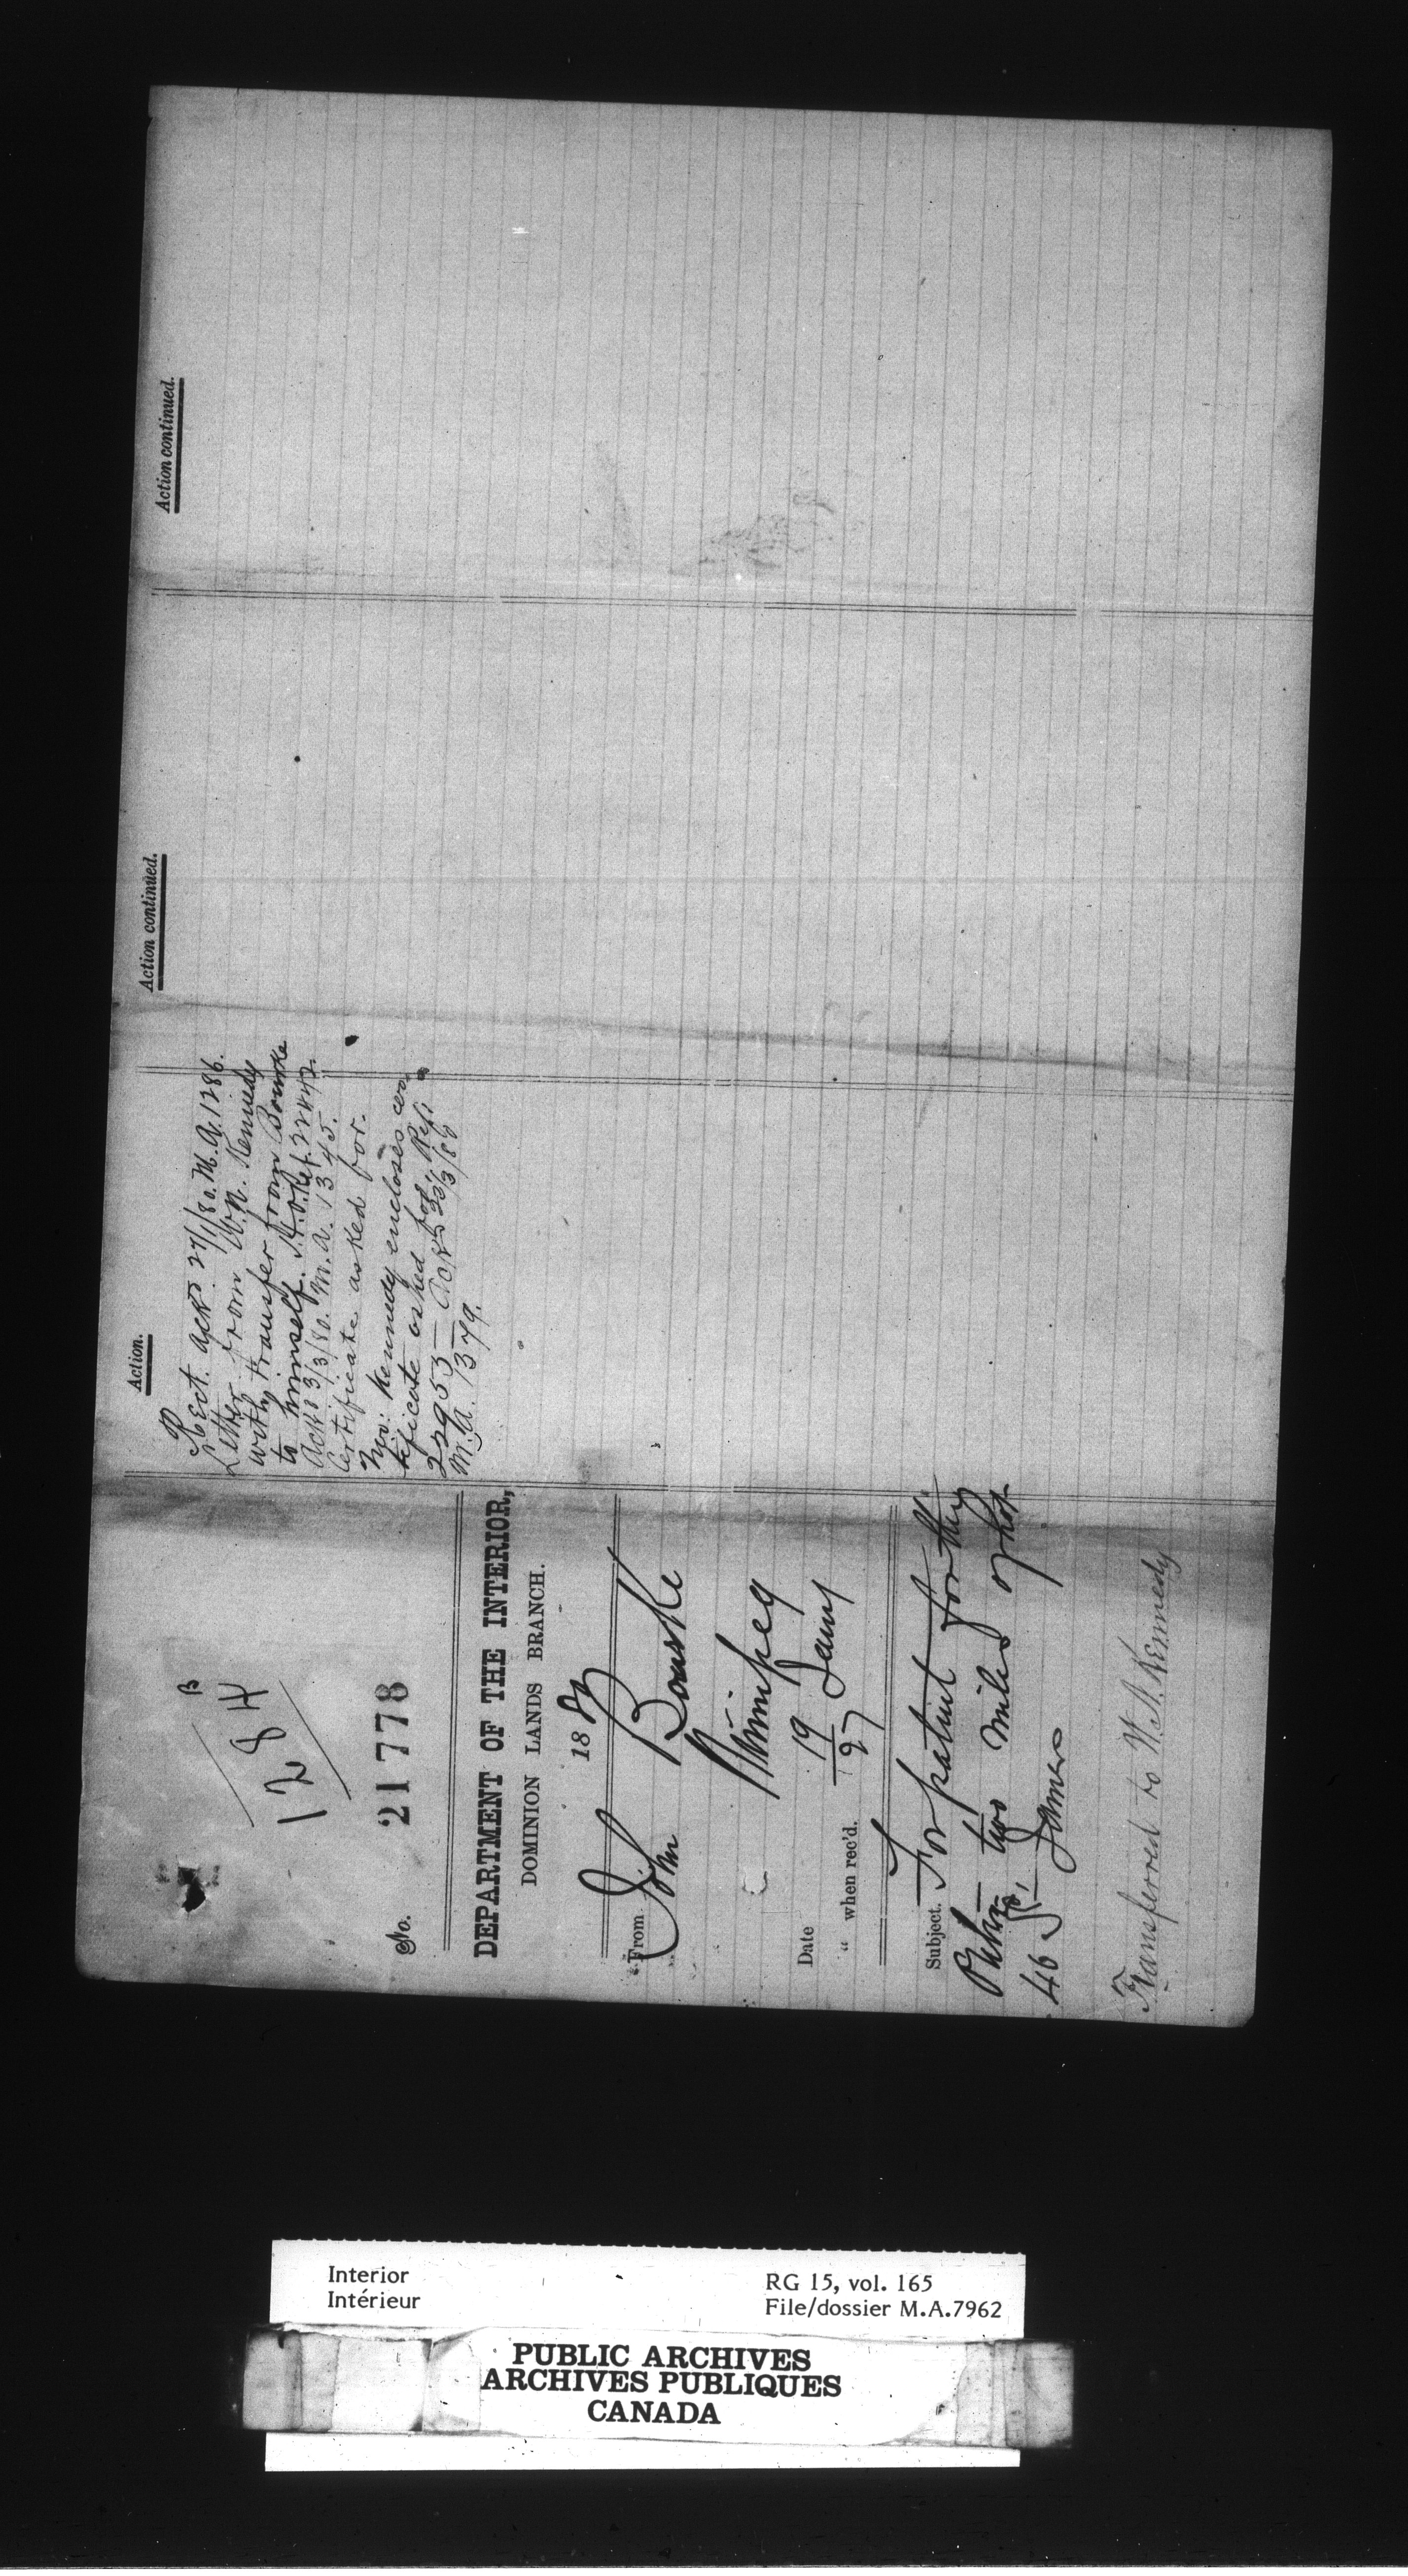 B
1284
No. 21778
DEPARTMENT OF THE INTERIOR,
DOMINION LANDS BRANCH.
1880
From John Bourke
Winnipeg
Date 19 Jany
" when rec'd. 27
Subject. For patent for the
two miles of Lot
46 St. James
Transferred to W. N. Kennedy
Action.
Rect. ackd 27/1/80. M.A. 1286.
Letter from W. N. Kennedy
with transfer from Bourke
to himself. Ref. 22442.
Ackd 3/3/80. M.A. 1345.
Certificate asked for.
Kennedy encloses cer
tificate asked for. Ref.
22953 — Ackd /3/80
M.A. 1379.
Action continued.
Action continued.
Interior
Intérieur
RG 15, vol. 165
File/dossier M.A.7962
PUBLIC ARCHIVES
ARCHIVES PUBLIQUES
CANADA